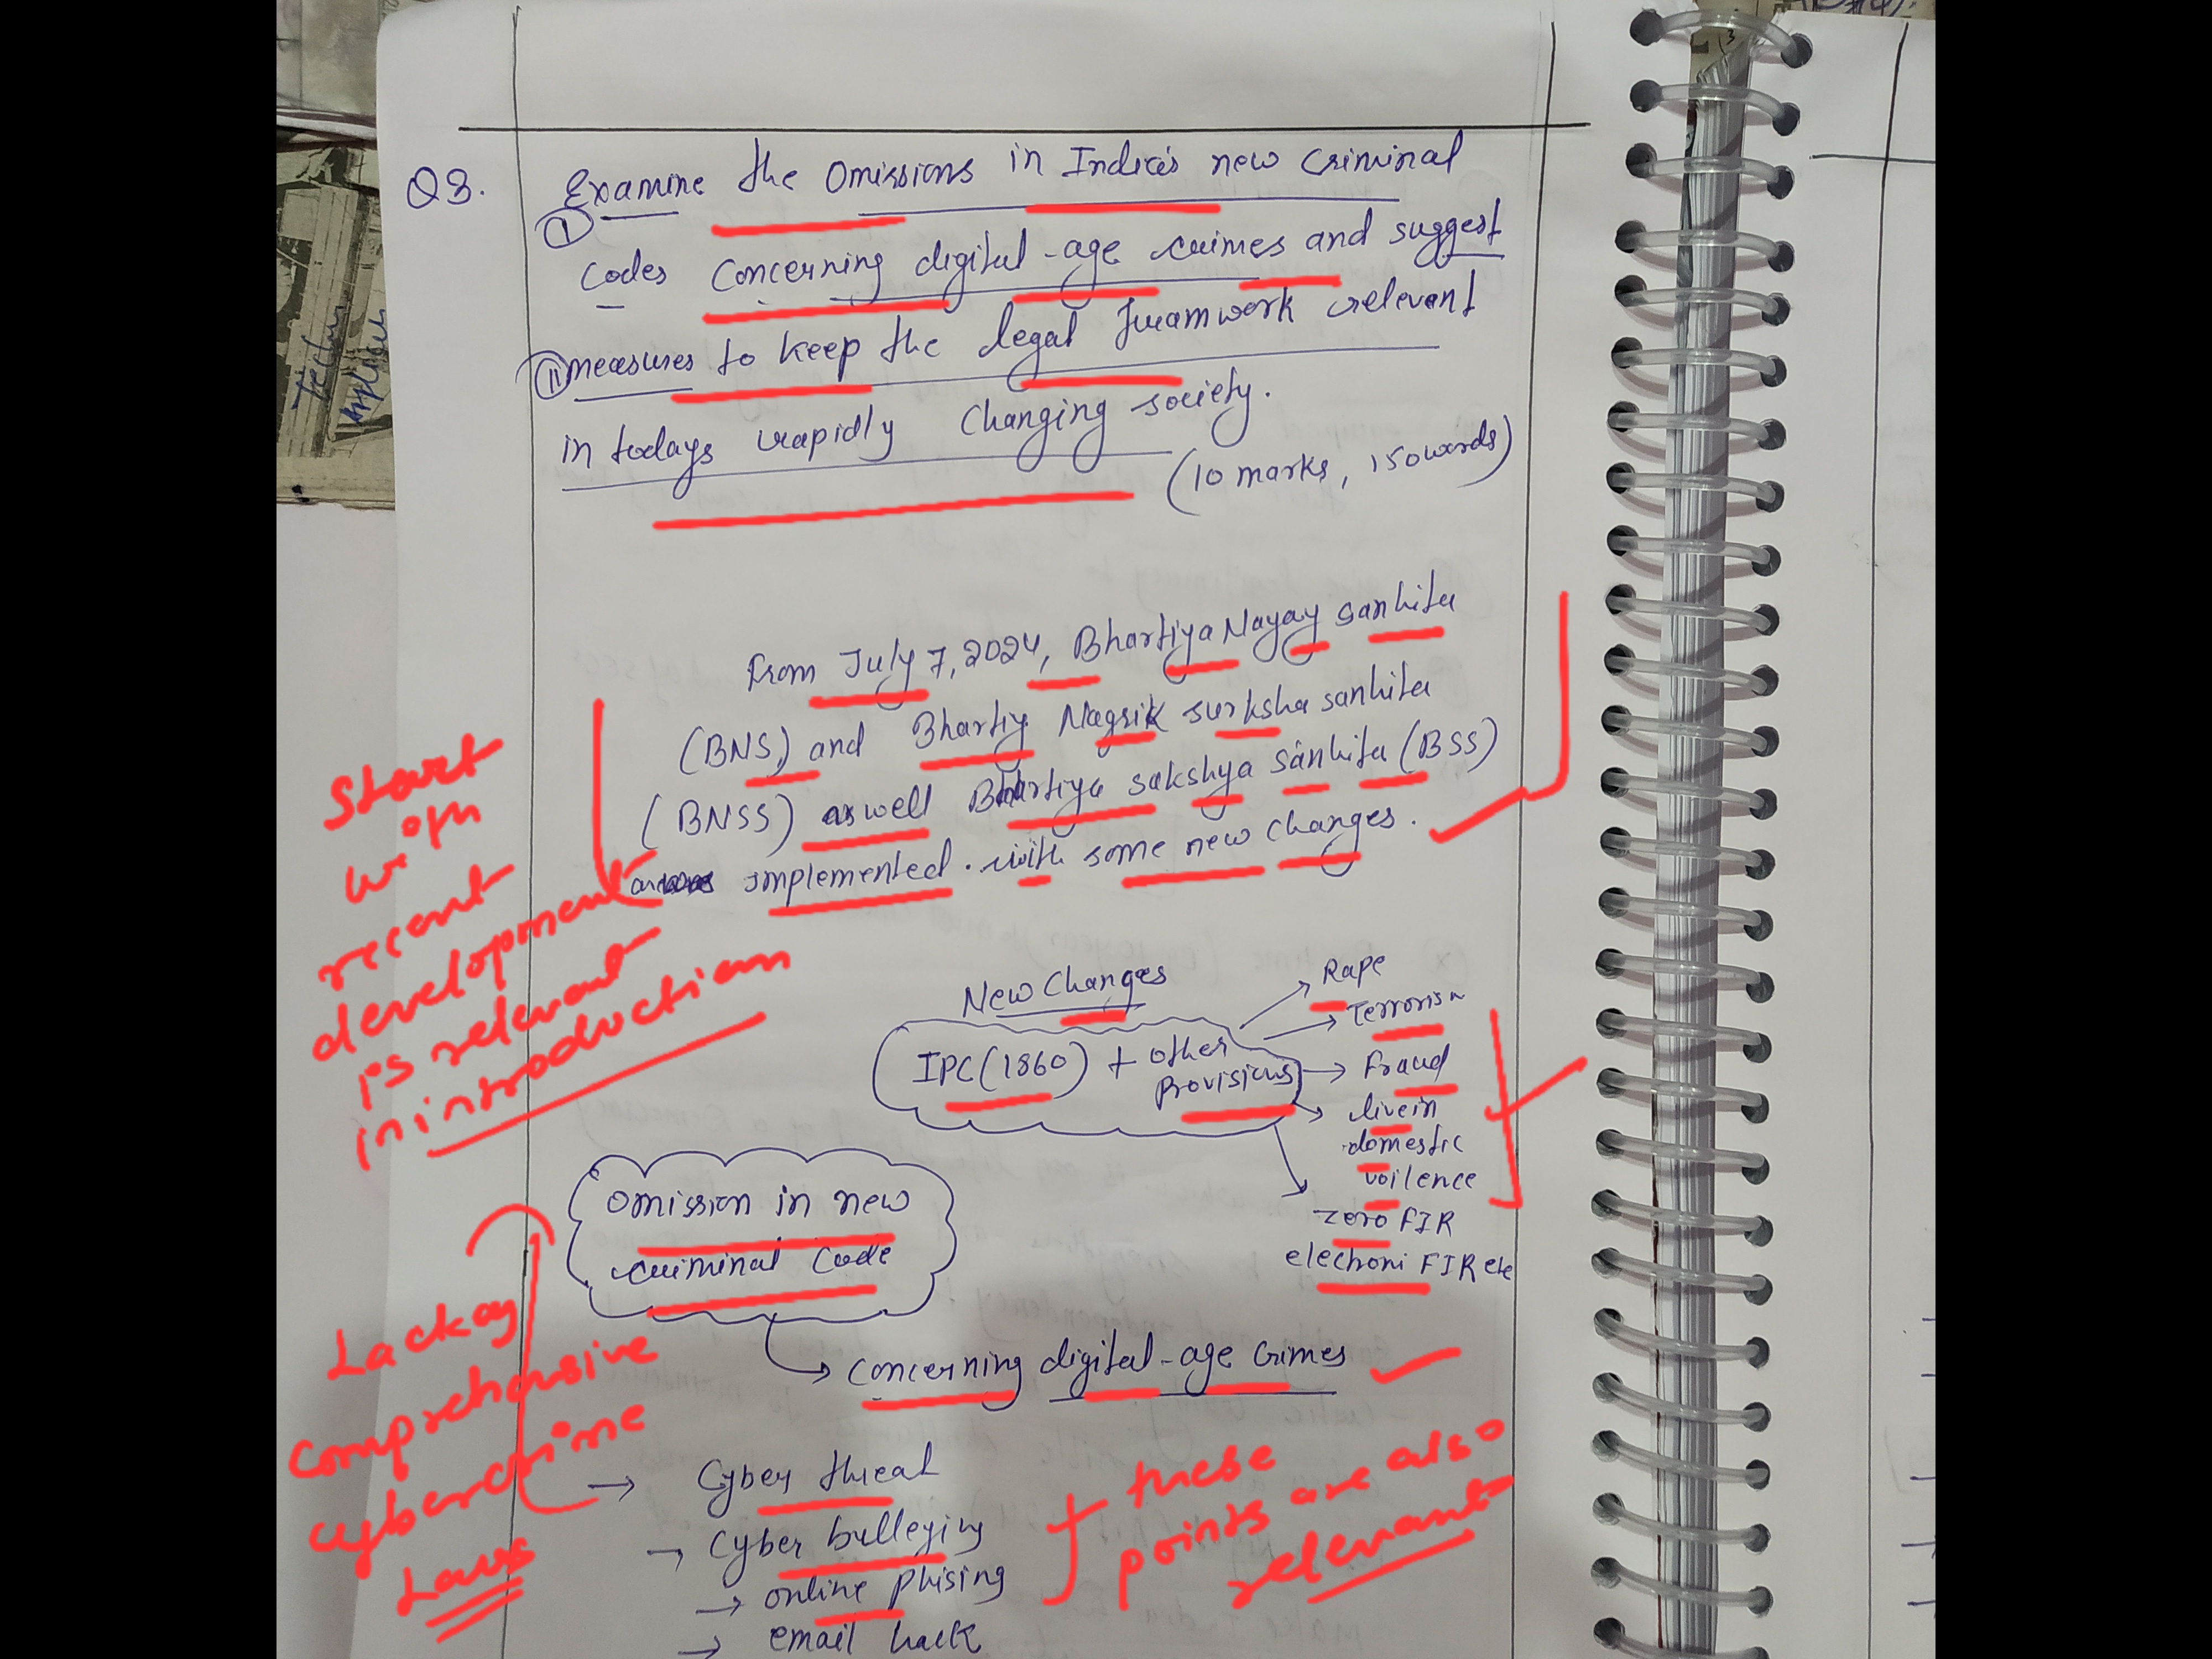 Q3. Examine the Omissions in India's new Criminal
①
Codes Concerning digital-age crimes and suggest
②measures to keep the legal framwork relevent
in todays rapidly Changing society.
(10 marks, 150words)
From July 7, 2024, Bhartiya Nayay sanhita
(BNS) and Bhartiy Nagrik surksha sanhita
(BNSS) as well Bhartiya sakshya sanhita (BSS)
implemented. with some new changes.
Start
with
recent
development
is relevant
in introduction
New Changes
IPC (1860) + other
provisions
Rape
Terrorism
Fraud
livein
domestic
voilence
zero FIR
electroni FIR etc
Omission in new
criminal Code
Concerning digital-age Crimes
Lack of
comprehensive
cybercrime
Laws
→ Cyber threat
→ Cyber bulleying
→ online phising
→ email hack
these
points are also
relevant